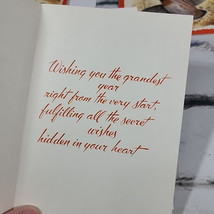 Wishing you the grandest
year
right from the very start,
fulfilling all the secret
wishes
hidden in your heart